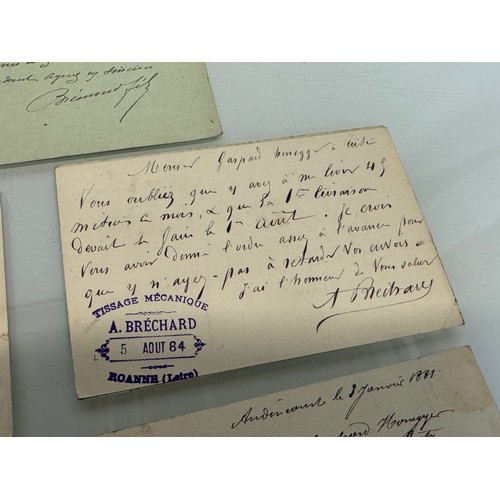 Brémond fils
Monsieur Gaspard Honegger à
Vous oubliez que vous avez à me livrer 45
métiers à mors, & que la 1re livraison
devait se faire le 1er août. Je crois
vous avoir donné l'ordre assez à l'avance pour
que vous n'ayez pas à retarder vos envois.
J'ai l'honneur de vous saluer
A Bréchard
TISSAGE MÉCANIQUE
A. BRÉCHARD
5 AOUT 84
ROANNE (Loire)
Audincourt le 3 Janvier 1881
Honegger